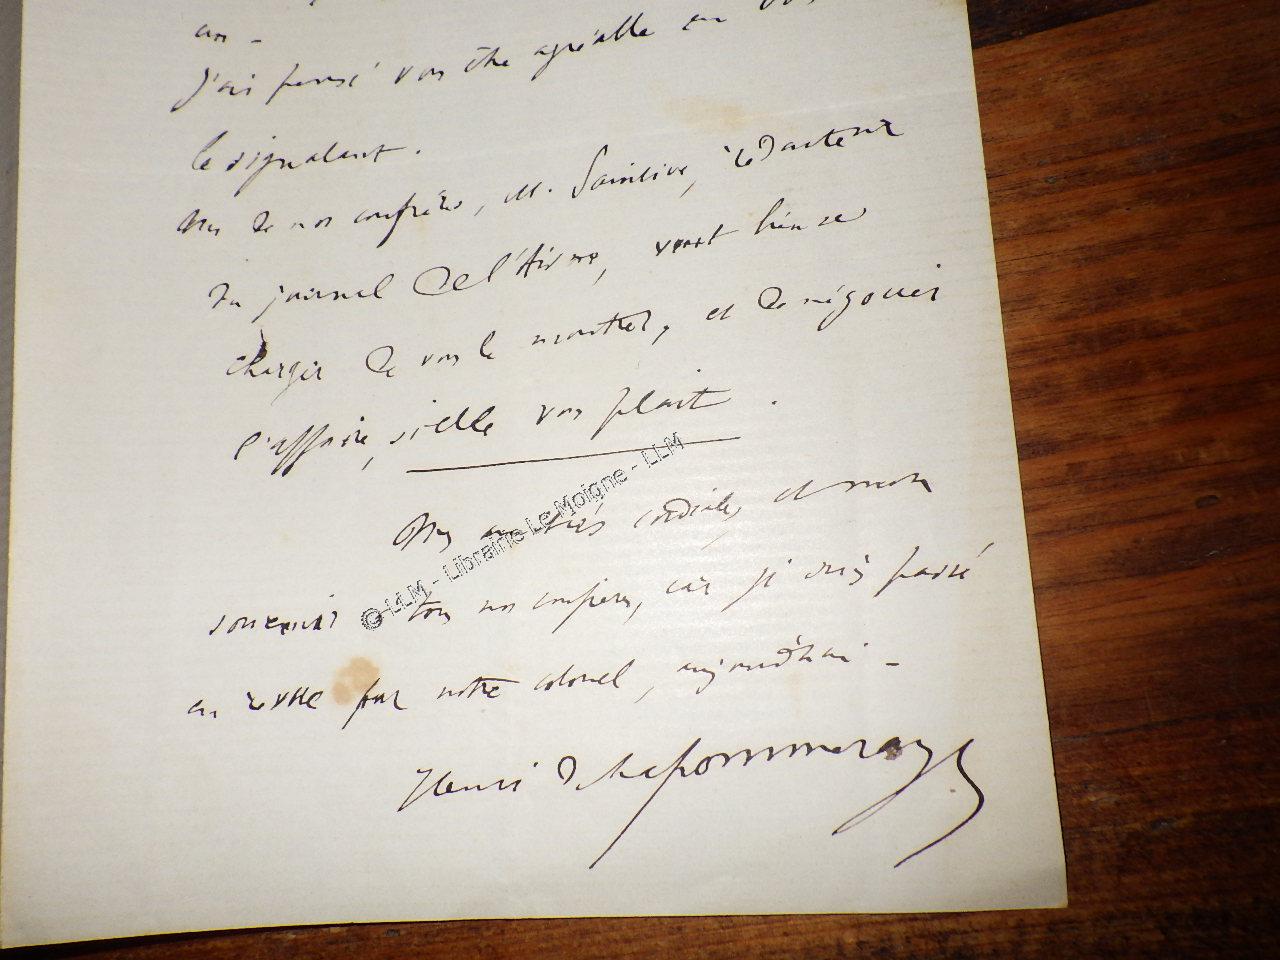 an -
J'ai pensé vous être agréable en vous
le signalant.
Un de nos confrères, M. Sainlive, rédacteur
du journal de l'Aisne, veut bien se
charger de vous le montrer, et de négocier
l'affaire, si elle vous plaît.
très cordiale, et mon
souvenir à tous nos confrères, car je suis passé
en revue par notre colonel, aujourd'hui -
Henri de Lapommeraye
© LLM - Librairie Le Moigne - LLM